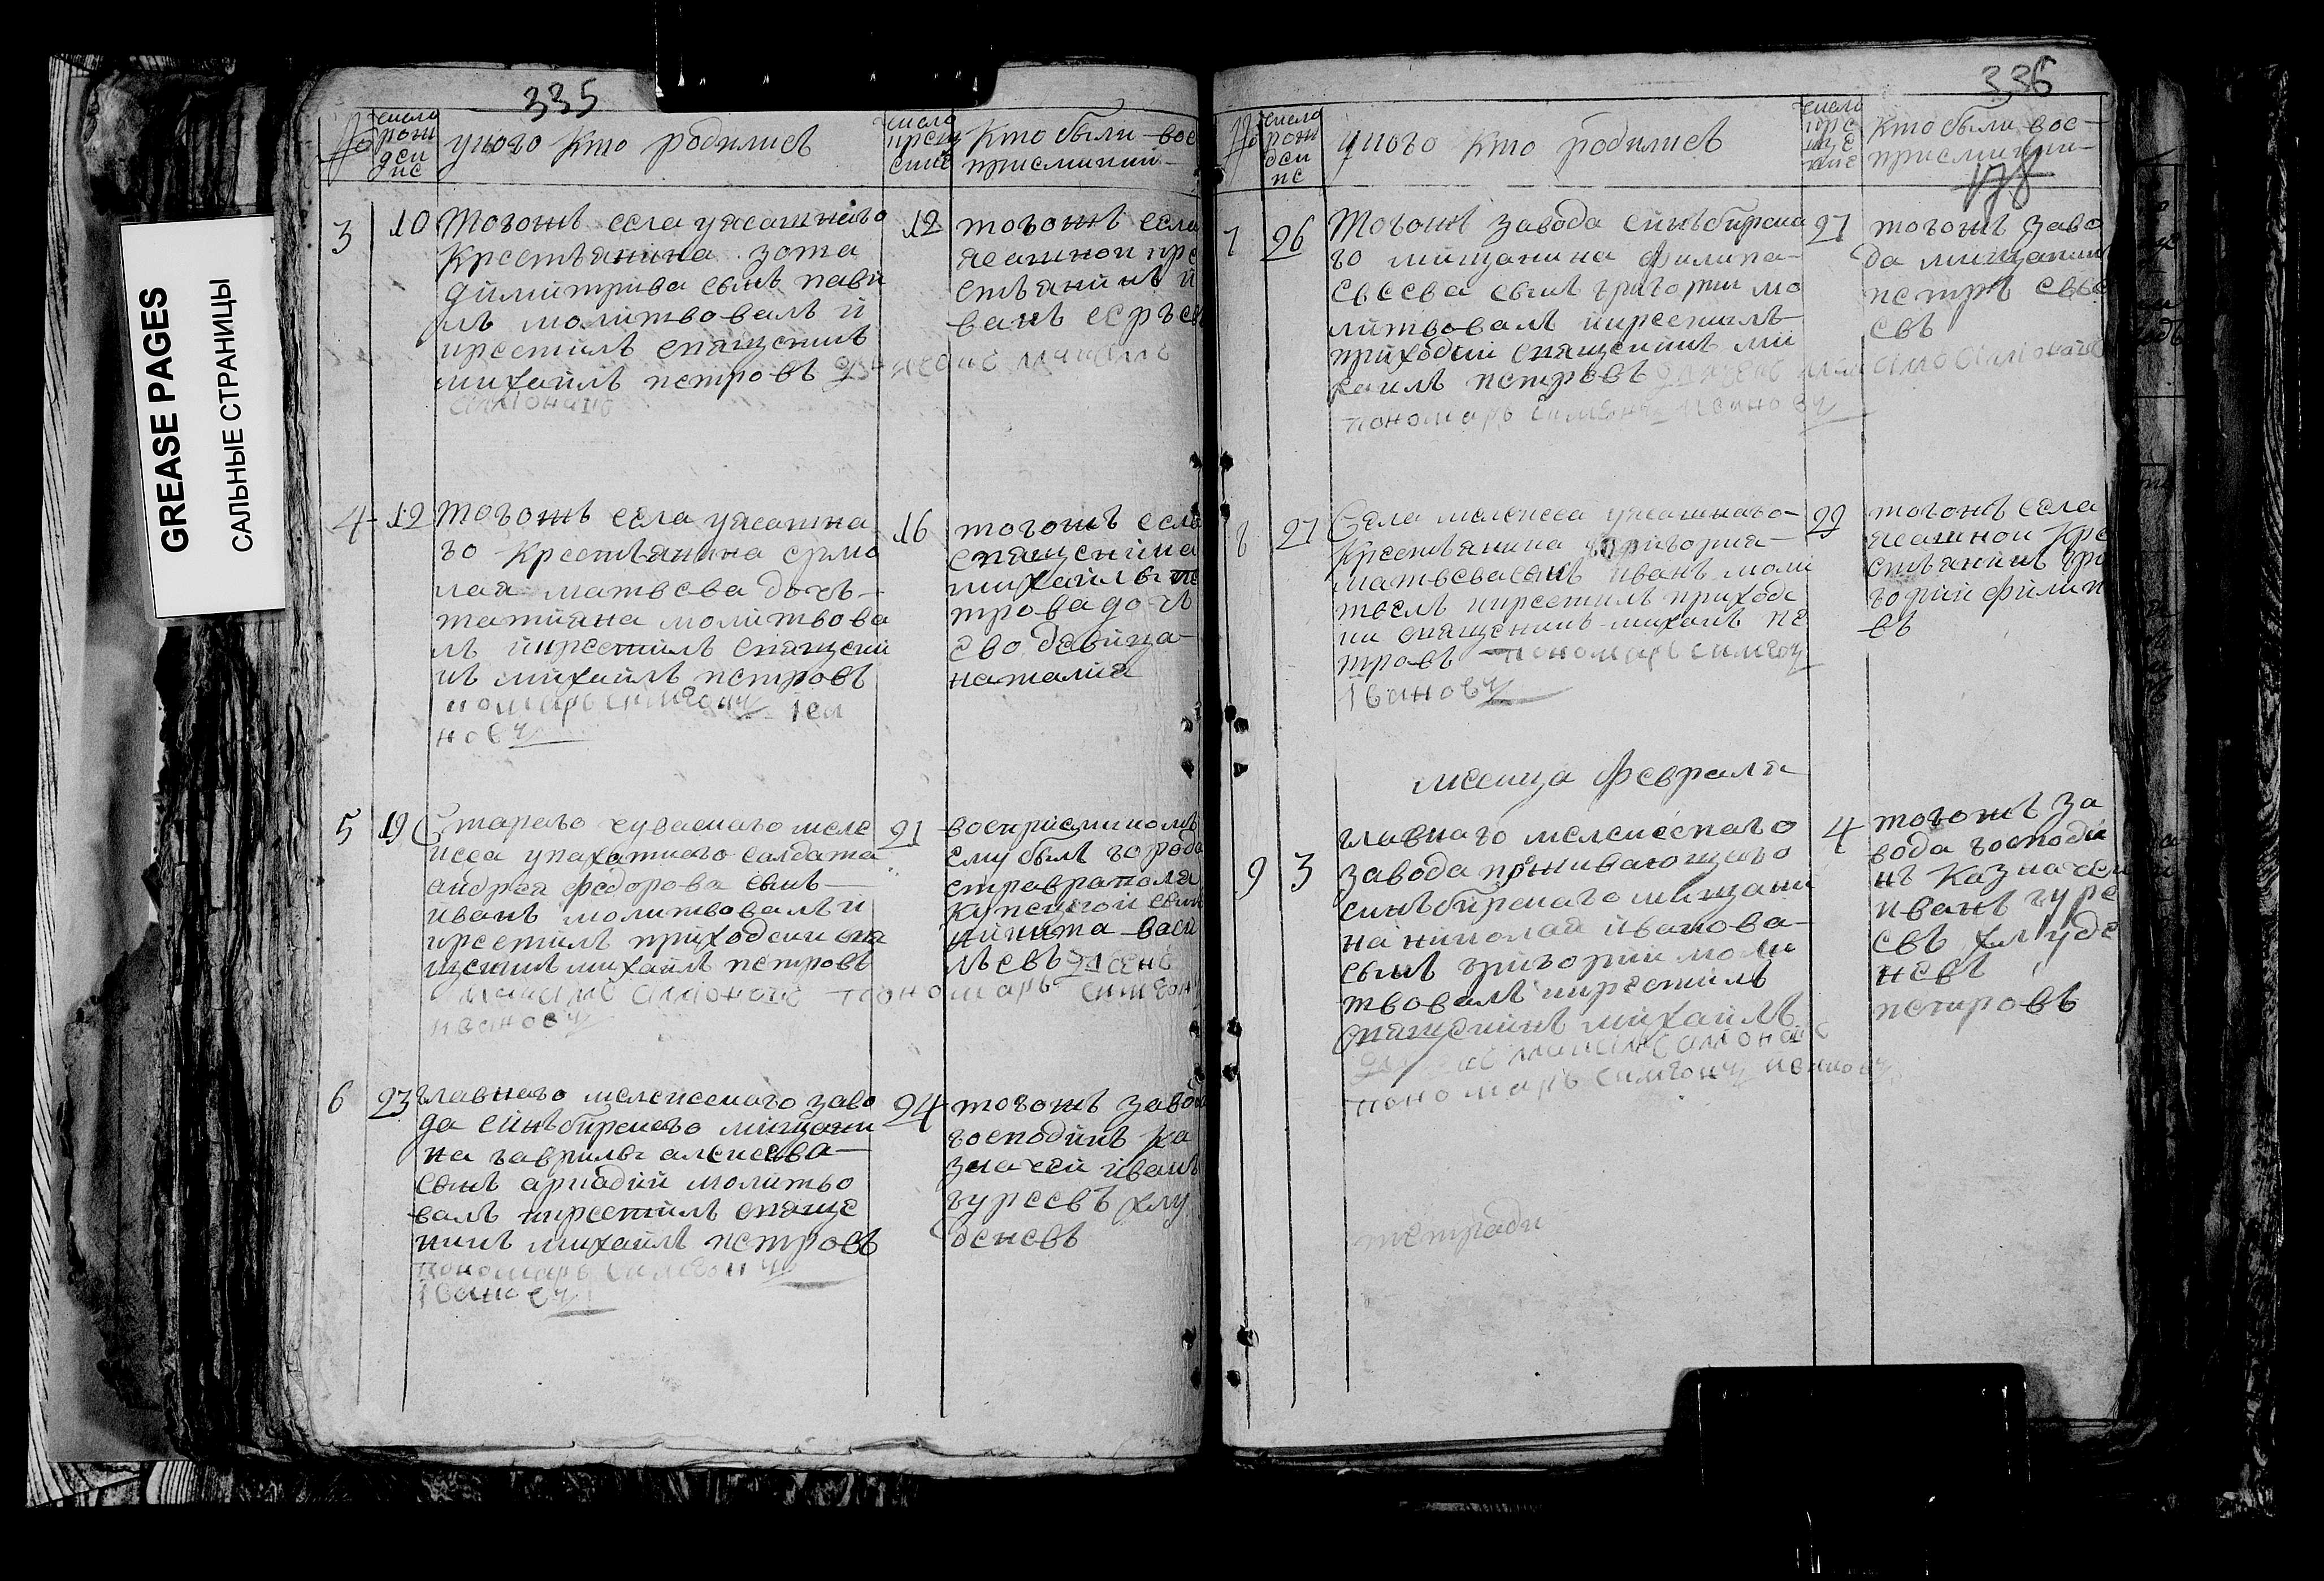 GREASE PAGES
САЛЬНЫЕ СТРАНИЦЫ
335
№
число рождение
уково Кто родились
число крещение
Кто были вос
приемники
3
10
Тогожъ села уясашнаго
Крестьянина зота
димитрива сынъ пави
лъ молитвовалъ и
крестилъ священникъ
михаилъ петровъ
12
тогожъ села
ясашнои кре
стьянинъ и
ванъ
4
12
тогожъ села уясашна
го Крестьянина ермо
лая матвеева дочь
татияна молитвова
лъ икрестилъ священи
къ михаилъ петровъ
пономарь симеонъ
16
тогожъ села
священника
михаила пе
трова дочь
ево девица
наталиа
5
19
Стараго чувашаго меле
кеса упахатнаго салдата
андрея федорова сынъ
иванъ молитвовалъ и
крестилъ приходски свя
щеникъ михаилъ петровъ
пономарь симеонъ
ивановъ
21
восприемникомъ
ему былъ города
ставраполя
купецкой сынъ
никита васи
льевъ
6
23
главнаго мелекескаго заво
да синьбирскаго мищани
на гаврилы алексеева
сынъ аркадий молитво
валъ икрестилъ свяще
никъ михаилъ петровъ
пономарь симеонъ
ивановъ
24
тогожъ завода
господинъ ка
значеи иванъ
гуреевъ хлу
деневъ
336
№
число рождение
уково Кто родились
число крещение
Кто были вос
приемники
178
7
26
Тогожъ завода синьбирска
го мищанина филипа
евсева сынъ григории мо
литвовалъ икрестилъ
приходски священикъ ми
хаилъ петровъ
пономарь симеонъ ивановъ
27
тогожъ заво
да мищанинъ
петръ евсе
евъ
8
27
Села мелекеса уясашнаго
Крестьянина григория
матвеева сынъ иванъ моли
твовалъ икрестилъ приходс
ки священикъ михаилъ пе
тровъ пономарь симеонъ
ивановъ
29
тогожъ села
ясашнои Кре
стьянинъ гри
горий филип
въ
месица Февраля
9
3
главнаго мелекескаго
завода проживающаго
синьбирскаго мищани
на николая иванова
сынъ григорий моли
твовалъ икрестилъ
священикъ михаилъ
пономарь симеонъ ивановъ
4
тогожъ за
вода господи
нъ Казначеи
иванъ гуре
евъ хлуде
невъ
петровъ
тетради